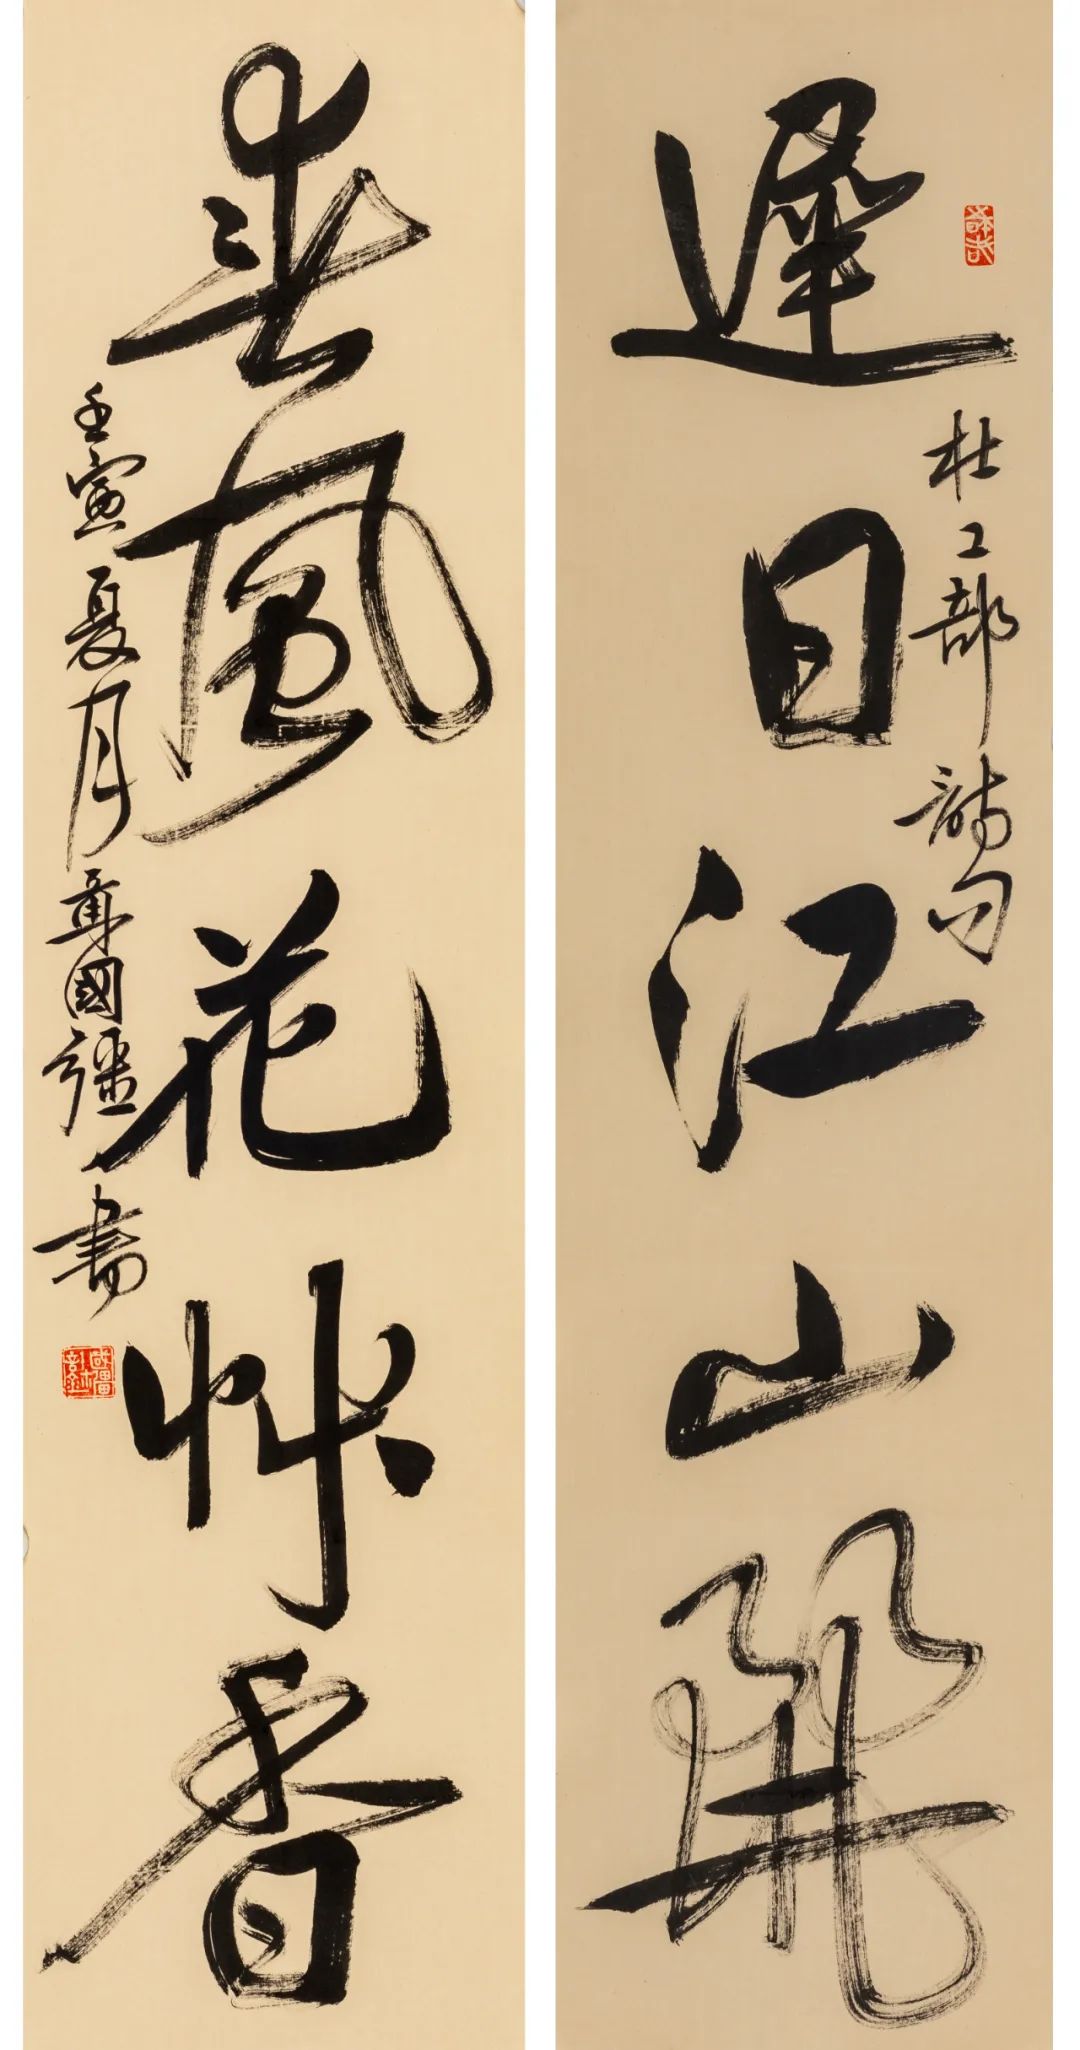 遲日江山麗
杜工部詩句
春風花艸香
壬寅夏月國疆書